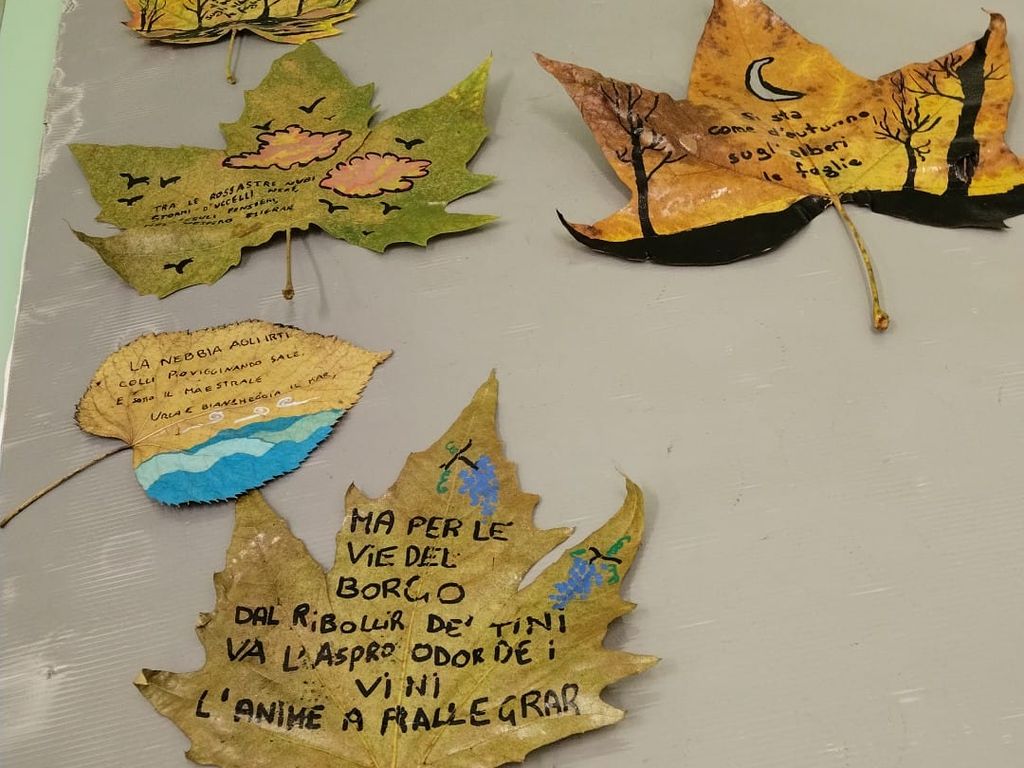 TRA LE ROSSASTRE NUBI
STORMI D'UCCELLI NERI,
COM'ESULI PENSIERI,
NEL VESPERO MIGRAR
Si sta
come d'autunno
sugli alberi
le foglie
LA NEBBIA AGLI IRTI
COLLI PIOVIGGINANDO SALE,
E SOTTO IL MAESTRALE
URLA E BIANCHEGGIA IL MAR,
MA PER LE
VIE DEL
BORGO
DAL RIBOLLIR DE' TINI
VA L'ASPRO ODOR DE i
VINI
L'ANIME A RALLEGRAR